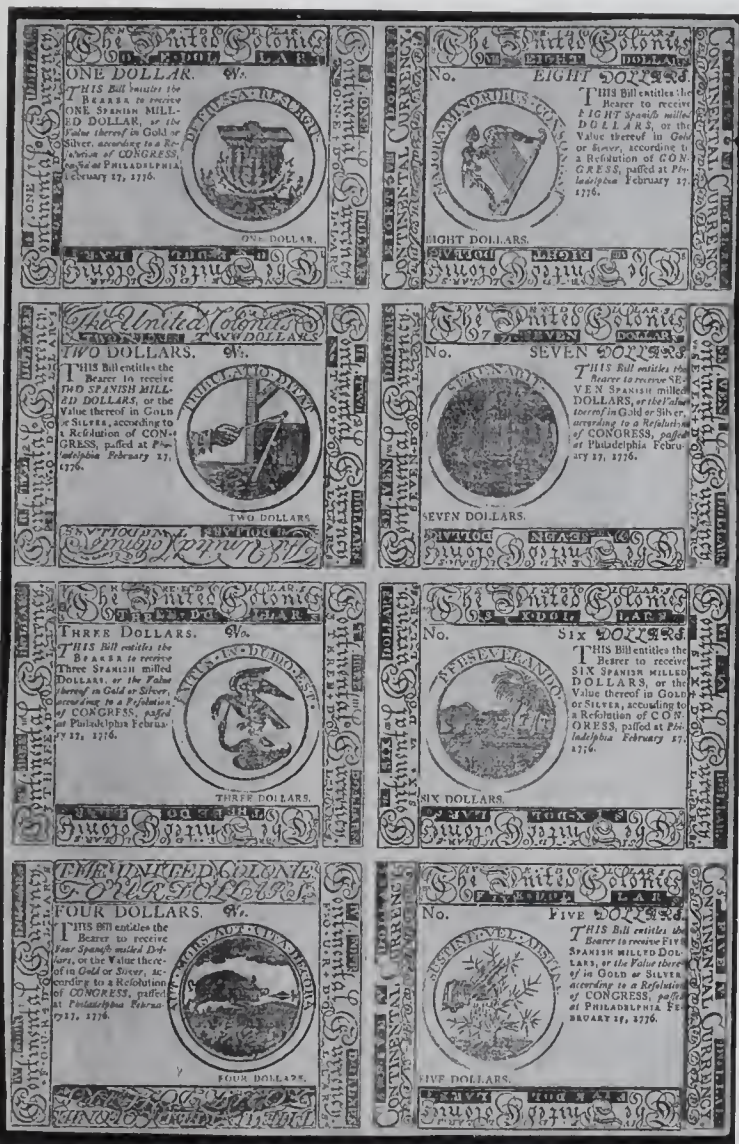 The United Colonies
ONE DOLLAR. No.
THIS Bill entitles the
BEARER to receive
ONE SPANISH MILL-
ED DOLLAR, or the
Value thereof in Gold or
Silver, according to a Re-
solution of CONGRESS,
passed at PHILADELPHIA
February 17, 1776.
DEPRESSA RESURGIT
ONE DOLLAR.
Continental Currency
The United Colonies
The United Colonies
EIGHT DOLLARS
No. EIGHT DOLLARS.
THIS Bill entitles the
Bearer to receive
EIGHT Spanish milled
DOLLARS, or the
Value thereof in Gold
or Silver, according to
a Resolution of CON-
GRESS, passed at Phi-
ladelphia February 17.
1776.
MAJORA MINORIBUS CONSONANT
EIGHT DOLLARS.
CONTINENTAL CURRENCY
The United Colonies
The United Colonies
TWO DOLLARS
TWO DOLLARS. No.
THIS Bill entitles the
Bearer to receive
TWO SPANISH MILL-
ED DOLLARS, or the
Value thereof in GOLD
or SILVER, according to
a Resolution of CON-
GRESS, passed at Phi-
ladelphia February 17,
1776.
TRIBULATIO DITAT
TWO DOLLARS
Continental Currency
The United Colonies
The United Colonies
SEVEN DOLLARS
No. SEVEN DOLLARS.
THIS Bill entitles the
Bearer to receive SE-
VEN SPANISH milled
DOLLARS, or the Value
thereof in Gold or Silver,
according to a Resolution
of CONGRESS, passed
at Philadelphia Febru-
ary 17, 1776.
SEVEN DOLLARS.
Continental Currency
The United Colonies
The United Colonies
THREE DOLLARS. No.
THIS Bill entitles the
BEARER to receive
Three SPANISH milled
DOLLARS, or the Value
thereof in Gold or Silver,
according to a Resolution
of CONGRESS, passed
at Philadelphia Februa-
ry 17, 1776.
EXITUS IN DUBIO EST
THREE DOLLARS.
Continental Currency
The United Colonies
The United Colonies
SIX DOLLARS
No. SIX DOLLARS.
THIS Bill entitles the
Bearer to receive
SIX SPANISH MILLED
DOLLARS, or the
Value thereof in GOLD
or SILVER, according to
a Resolution of CON-
GRESS, passed at Phi-
ladelphia February 17.
1776.
PERSEVERANDO
SIX DOLLARS.
Continental Currency
The United Colonies
THE UNITED COLONIE
FOUR DOLLARS
FOUR DOLLARS. No.
THIS Bill entitles the
Bearer to receive
Four Spanish milled Dol-
lars, or the Value there-
of in Gold or Silver, ac-
cording to a Resolution
of CONGRESS, passed
at Philadelphia Februa-
ry 17, 1776.
AUT MORS AUT VITA DECORA
FOUR DOLLARS.
Continental Currency
The United Colonies
FIVE DOLLAR
No. FIVE DOLLARS.
THIS Bill entitles the
Bearer to receive FIVE
SPANISH MILLED DOL-
LARS, or the Value there-
of in GOLD or SILVER
according to a Resolution
of CONGRESS, passed
at PHILADELPHIA FE-
BRUARY 17, 1776.
SUSTINE VEL ABSTINE
FIVE DOLLARS.
CONTINENTAL CURRENCY
The United Colonies